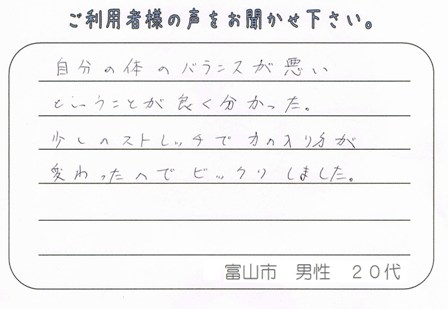 ご利用者様の声をお聞かせ下さい。
自分の体のバランスが悪い
ということが良く分かった。
少しのストレッチで力の入り方が
変わったのでビックリしました。
富山市 男性 20代